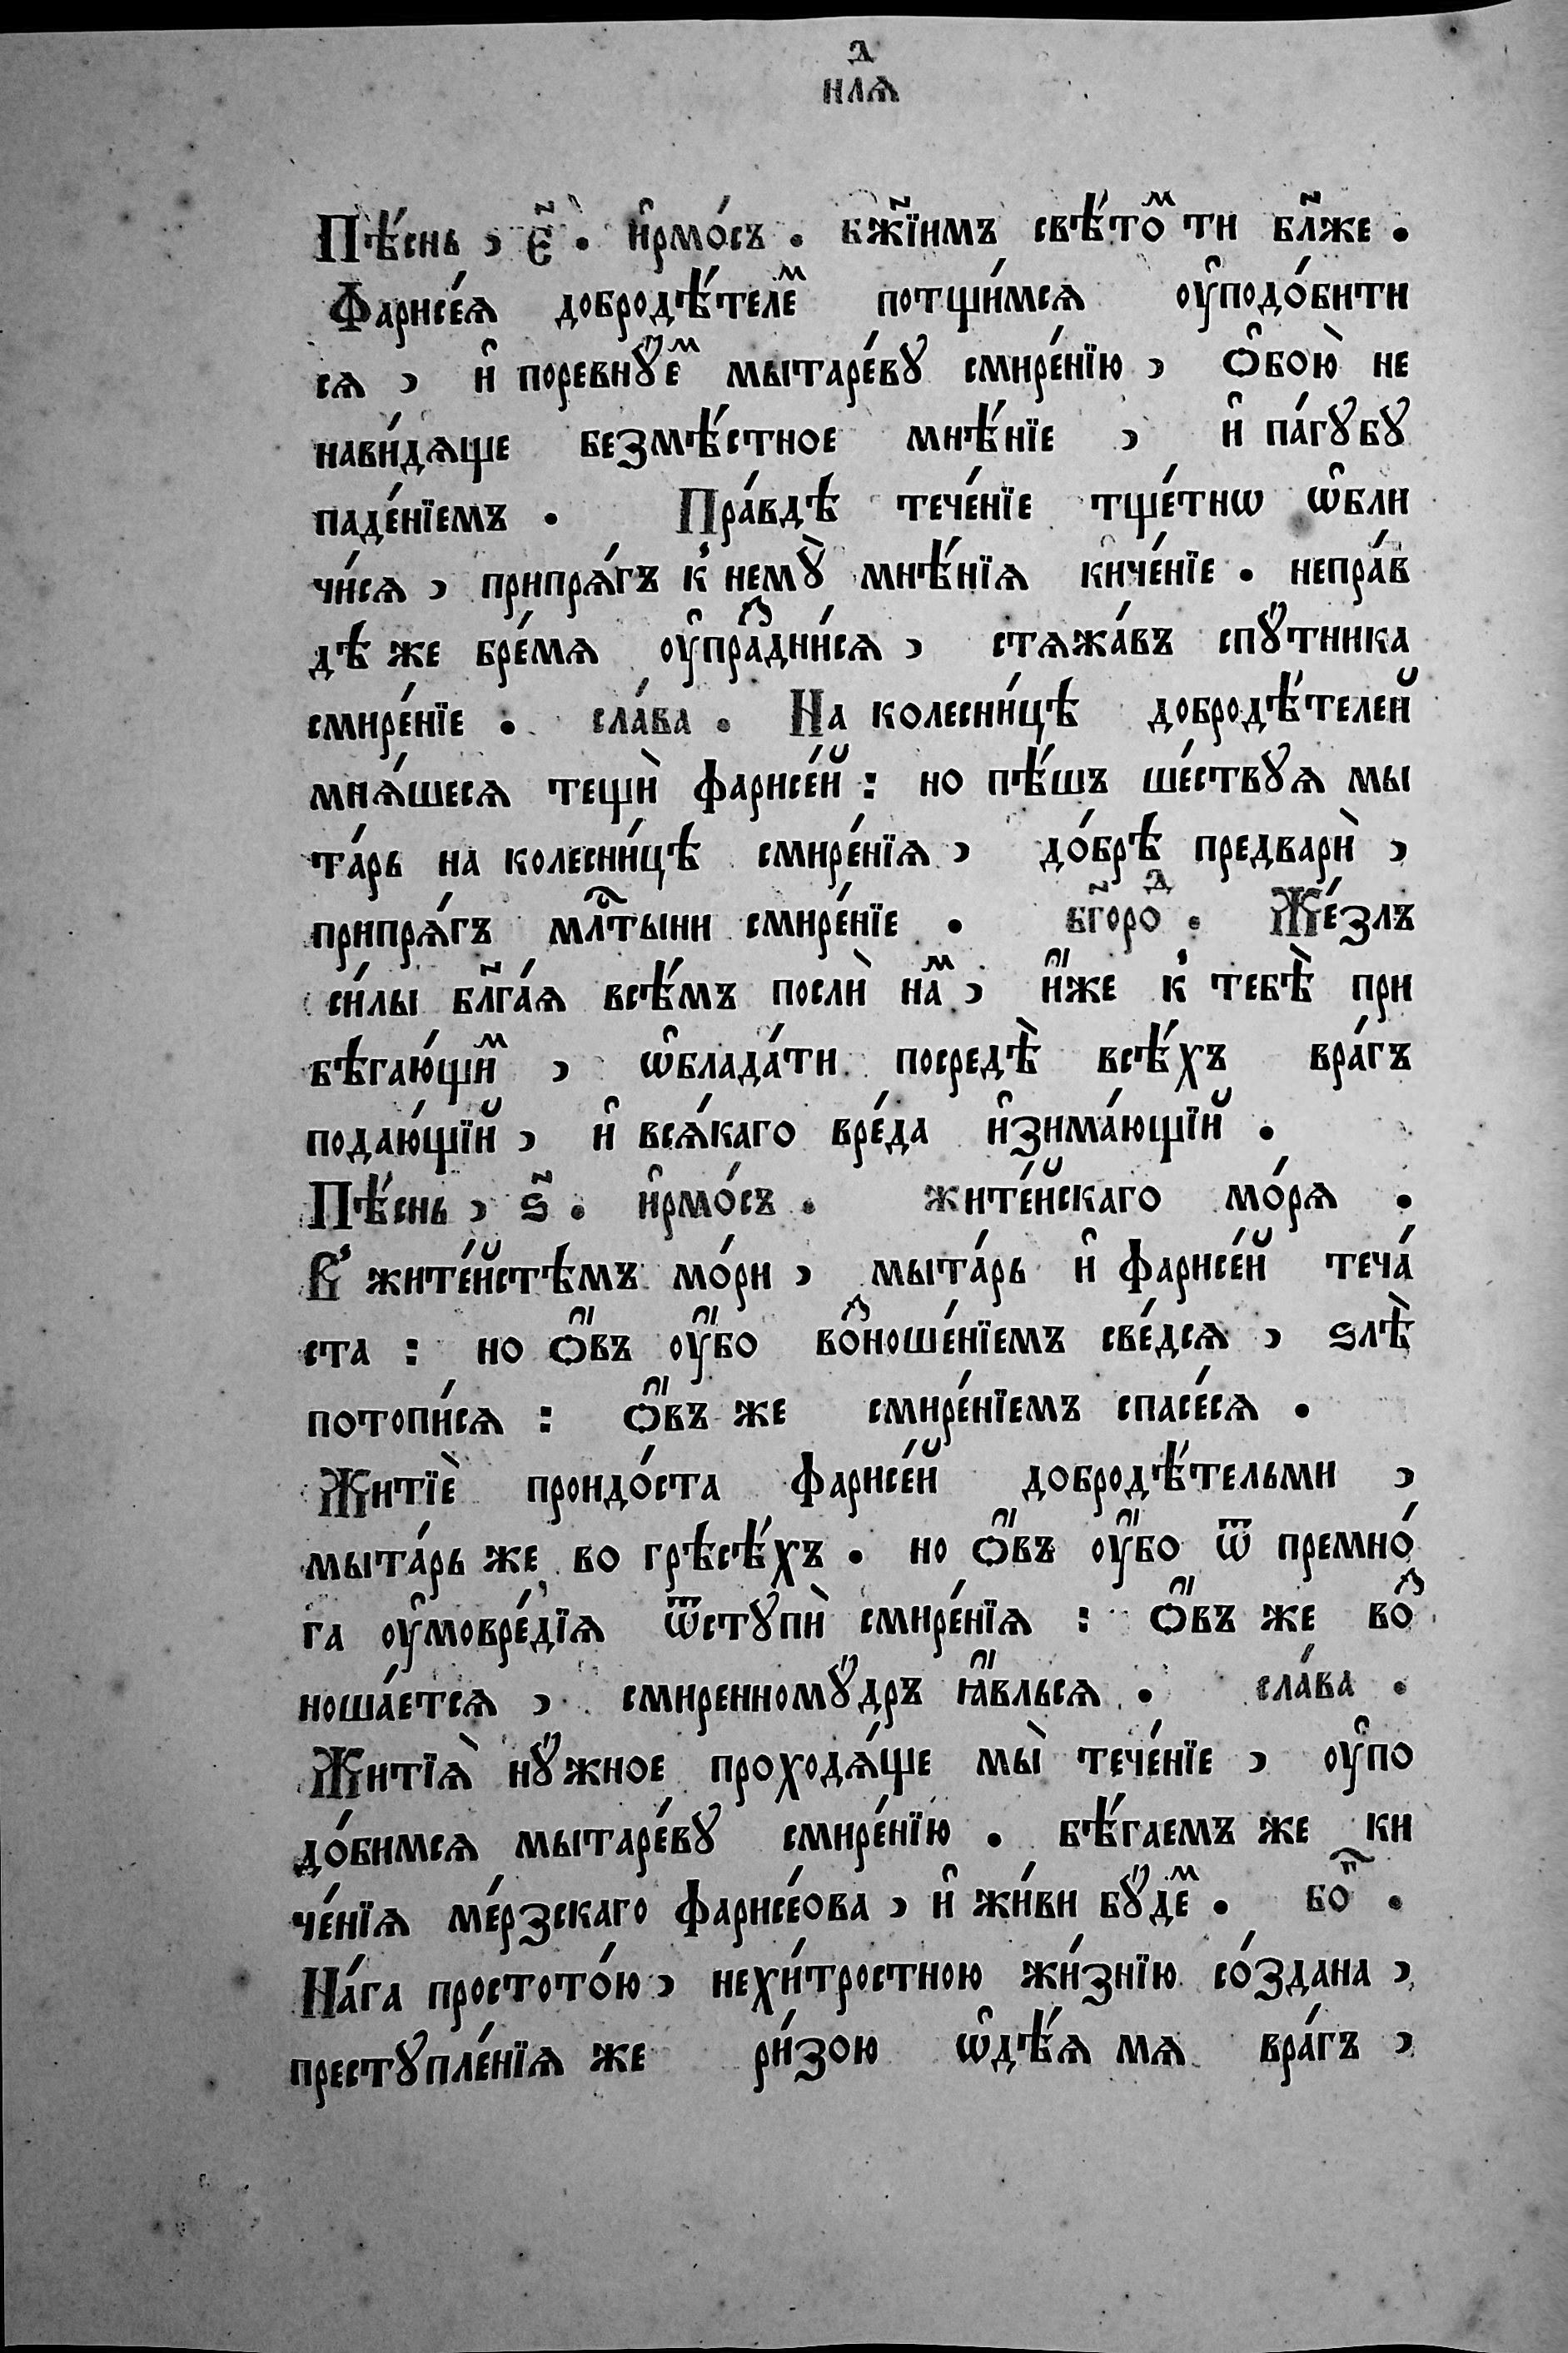 нлѧⷣ
Пѣ́снь , є҃ . и҆рмо́съ . бж҃їимъ свѣ́тоⷨ ти бл҃же .
Фарисе́ѧ добродѣ́телеⷨ потщи́мсѧ оу҆подо́бити
сѧ , и҆ поревнꙋ́еⷨ мытаре́вꙋ смире́нїю , ѻ҆бою̀ не
нави́дѧще безмѣ́стное мнѣ́нїе , и҆ па́гꙋбꙋ
паде́нїемъ . Пра́вдѣ тече́нїе тще́тнѡ ѡ҆бли
чи́сѧ , припрѧ́гъ к̾ немꙋ̀ мнѣ́нїѧ киче́нїе . непра́в
дѣ же бре́мѧ оу҆праⷥдни́сѧ , стѧжа́въ спꙋ́тника
смире́нїе . сла́ва . На колесни́цѣ добродѣ́телей
мнѧ́шесѧ тещѝ фарисе́й : но пѣ́шъ ше́ствꙋѧ мы
та́рь на колесни́цѣ смире́нїѧ , до́брѣ предварѝ ,
припрѧ́гъ млⷭ҇тыни смире́нїе . бг҃ороⷣ . Же́злъ
си́лы бл҃га́ѧ всѣ́мъ послѝ наⷨ , и҆̀же к̾ тебѣ̀ при
бѣгаю́щиⷨ , ѡ҆блада́ти посредѣ̀ всѣ́хъ вра́гъ
подаю́щїй , и҆ всѧ́каго вре́да и҆зима́ющїй .
Пѣ́снь , ѕ҃ . и҆рмо́съ . жите́йскаго мо́рѧ .
В̾ жите́йстѣмъ мо́ри , мыта́рь и҆ фарисе́й теча́
ста : но ѻ҆́въ оу҆́бо воⷥноше́нїемъ све́дсѧ , ѕлѣ̀
потопи́сѧ : ѻ҆́въ же смире́нїемъ спасе́сѧ .
Житїѐ проидо́ста фарисе́й добродѣ́тельми ,
мыта́рь же во грѣсѣ́хъ . но ѻ҆́въ оу҆́бо ѿ премно́
га оу҆мовре́дїѧ ѿстꙋпѝ смире́нїѧ : ѻ҆́въ же воⷥ
ноша́етсѧ , смиренномꙋ́дръ ꙗ҆́вльсѧ . сла́ва .
Житїѧ̀ нꙋ́жное проходѧ́ще мы̀ тече́нїе , оу҆по
до́бимсѧ мытаре́вꙋ смире́нїю . бѣ́гаемъ же ки
че́нїѧ ме́рзскаго фарисе́ова , и҆ жи́ви бꙋ́деⷨ . боⷫ҇ .
На́га простото́ю , нехи́тростною жи́знїю со́здана ,
престꙋпле́нїѧ же ри́зою ѡ҆дѣ́ѧ мѧ вра́гъ ,